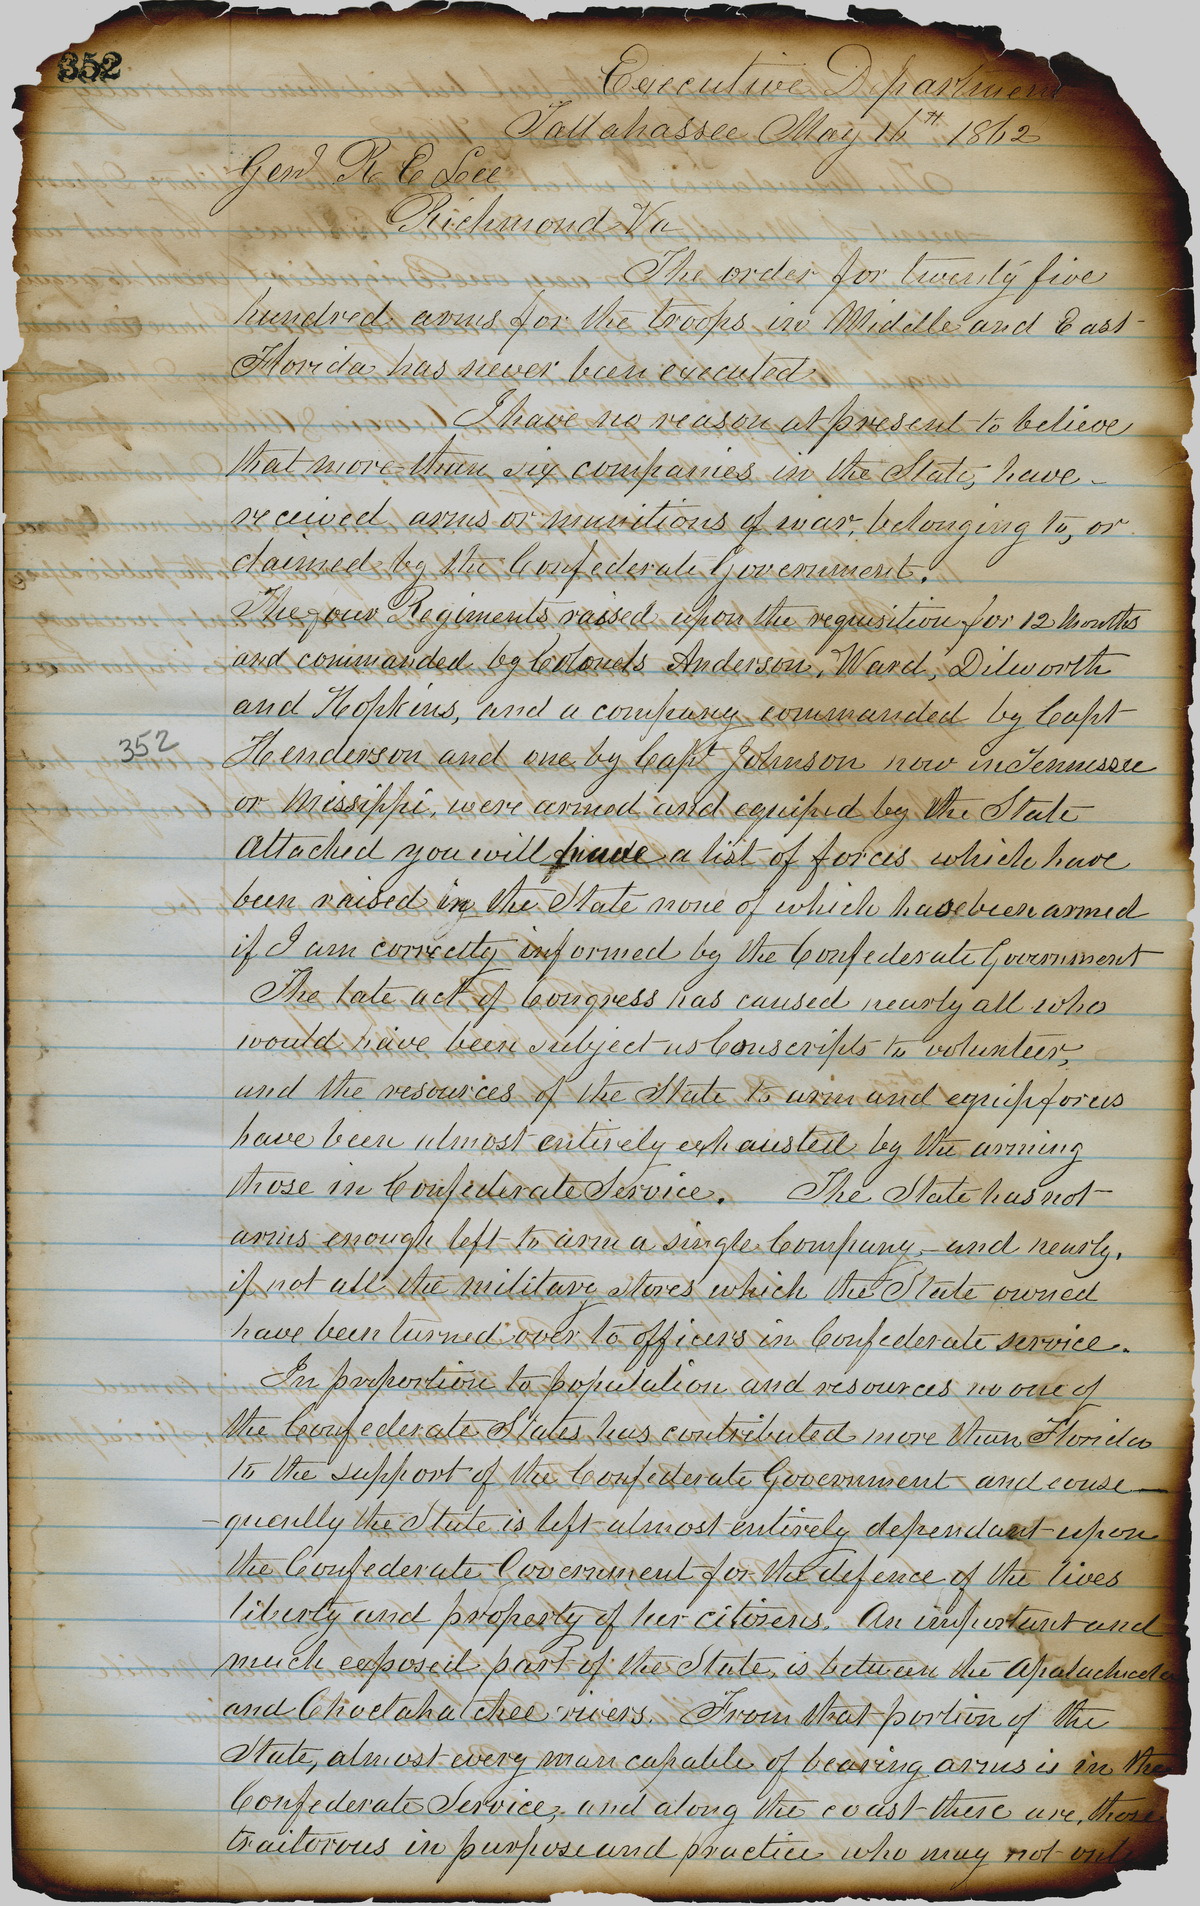 352
Executive Department
Tallahassee May 16th 1862
Genl R E Lee
Richmond Va
The order for twenty five
hundred arms for the troops in Middle and East
Florida has never been executed
I have no reason at present to believe
that more than six companies in the State, have
received arms or munitions of war, belonging to, or
claimed by the Confederate Government.
The four Regiments raised upon the requisition for 12 Months
and commanded by Colonels Anderson, Ward, Dilworth
and Hopkins, and a company commanded by Capt
352
Henderson and one by Capt Johnson now in Tennessee
or Missippi, were armed and equiped by the State
Attached you will have a list of forces which have
been raised in the State none of which have been armed
if I am correctly informed by the Confederate Government
The late act of Congress has caused nearly all who
would have been subject as Conscripts to volunteer,
and the resources of the State to arm and equip forces
have been almost entirely exhausted by the arming
those in Confederate Service. The State has not
arms enough left to arm a single Company, and nearly,
if not all the military stores which the State owned
have been turned over to officers in Confederate service.
In proportion to population and resources no one of
the Confederate States has contributed more than Florida
to the support of the Confederate Government and conse—
-quently the State is left almost entirely dependant upon
the Confederate Government for the defence of the lives
liberty and property of her citizens. An important and
much exposed part of the State, is between the
and Choctahatchee rivers. From that portion of the
State, almost every man capable of bearing arms is in the
Confederate Service, and along the coast there are, those
traitorous in purpose and practice who may not only